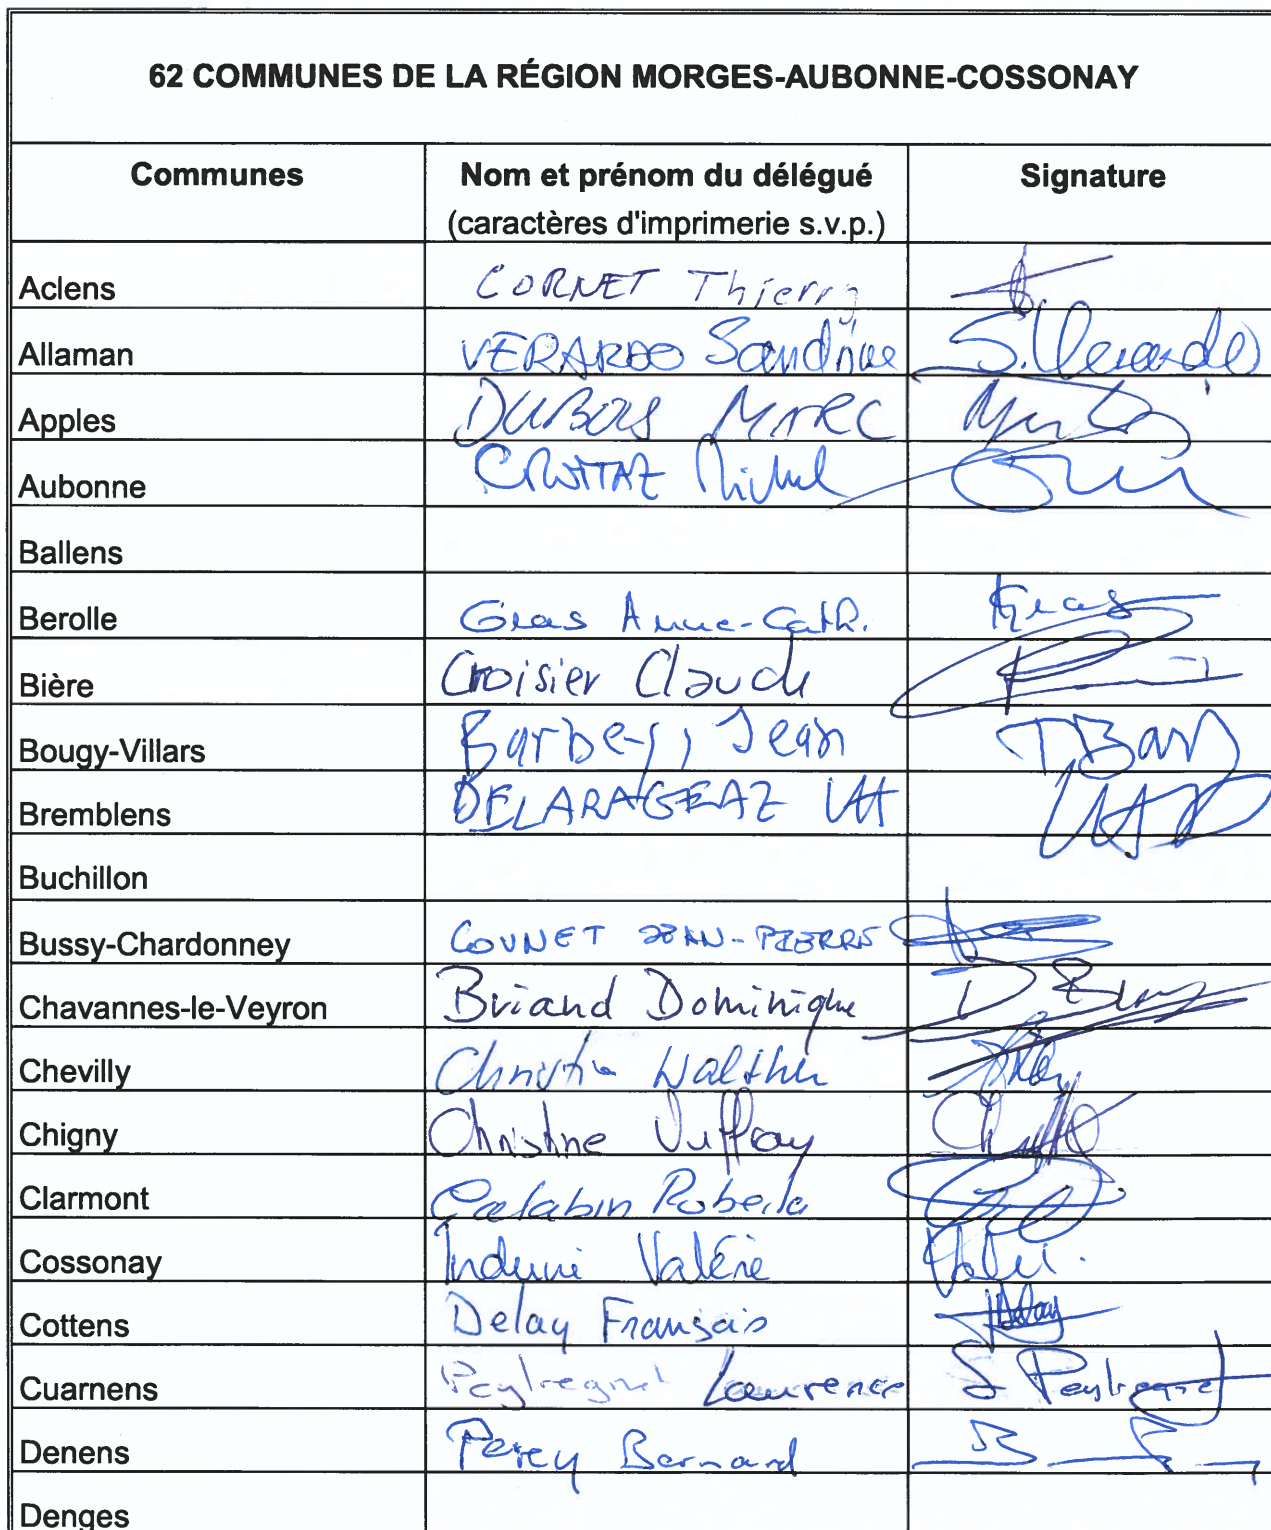 62 COMMUNES DE LA RÉGION MORGES-AUBONNE-COSSONAY
Communes Nom et prénom du délégué Signature
(caractères d'imprimerie s.v.p.)
Aclens CORNET Thierry
Allaman VERARDO Sandrine S. Verardo
Apples DUBOIS MARC
Aubonne Michel
Ballens
Berolle Gras Anne-Cath. Gras
Bière Croisier Claude
Bougy-Villars Barbey, Jean
Bremblens DELARAGEAZ
Buchillon
Bussy-Chardonney COUNET JEAN-PIERRE
Chavannes-le-Veyron Briand Dominique
Chevilly Christian Walther
Chigny Christine Vuffray
Clarmont
Cossonay Induni Valérie
Cottens Delay François Delay
Cuarnens Peytregnet Laurence Peytregnet
Denens Perey Bernard
Denges